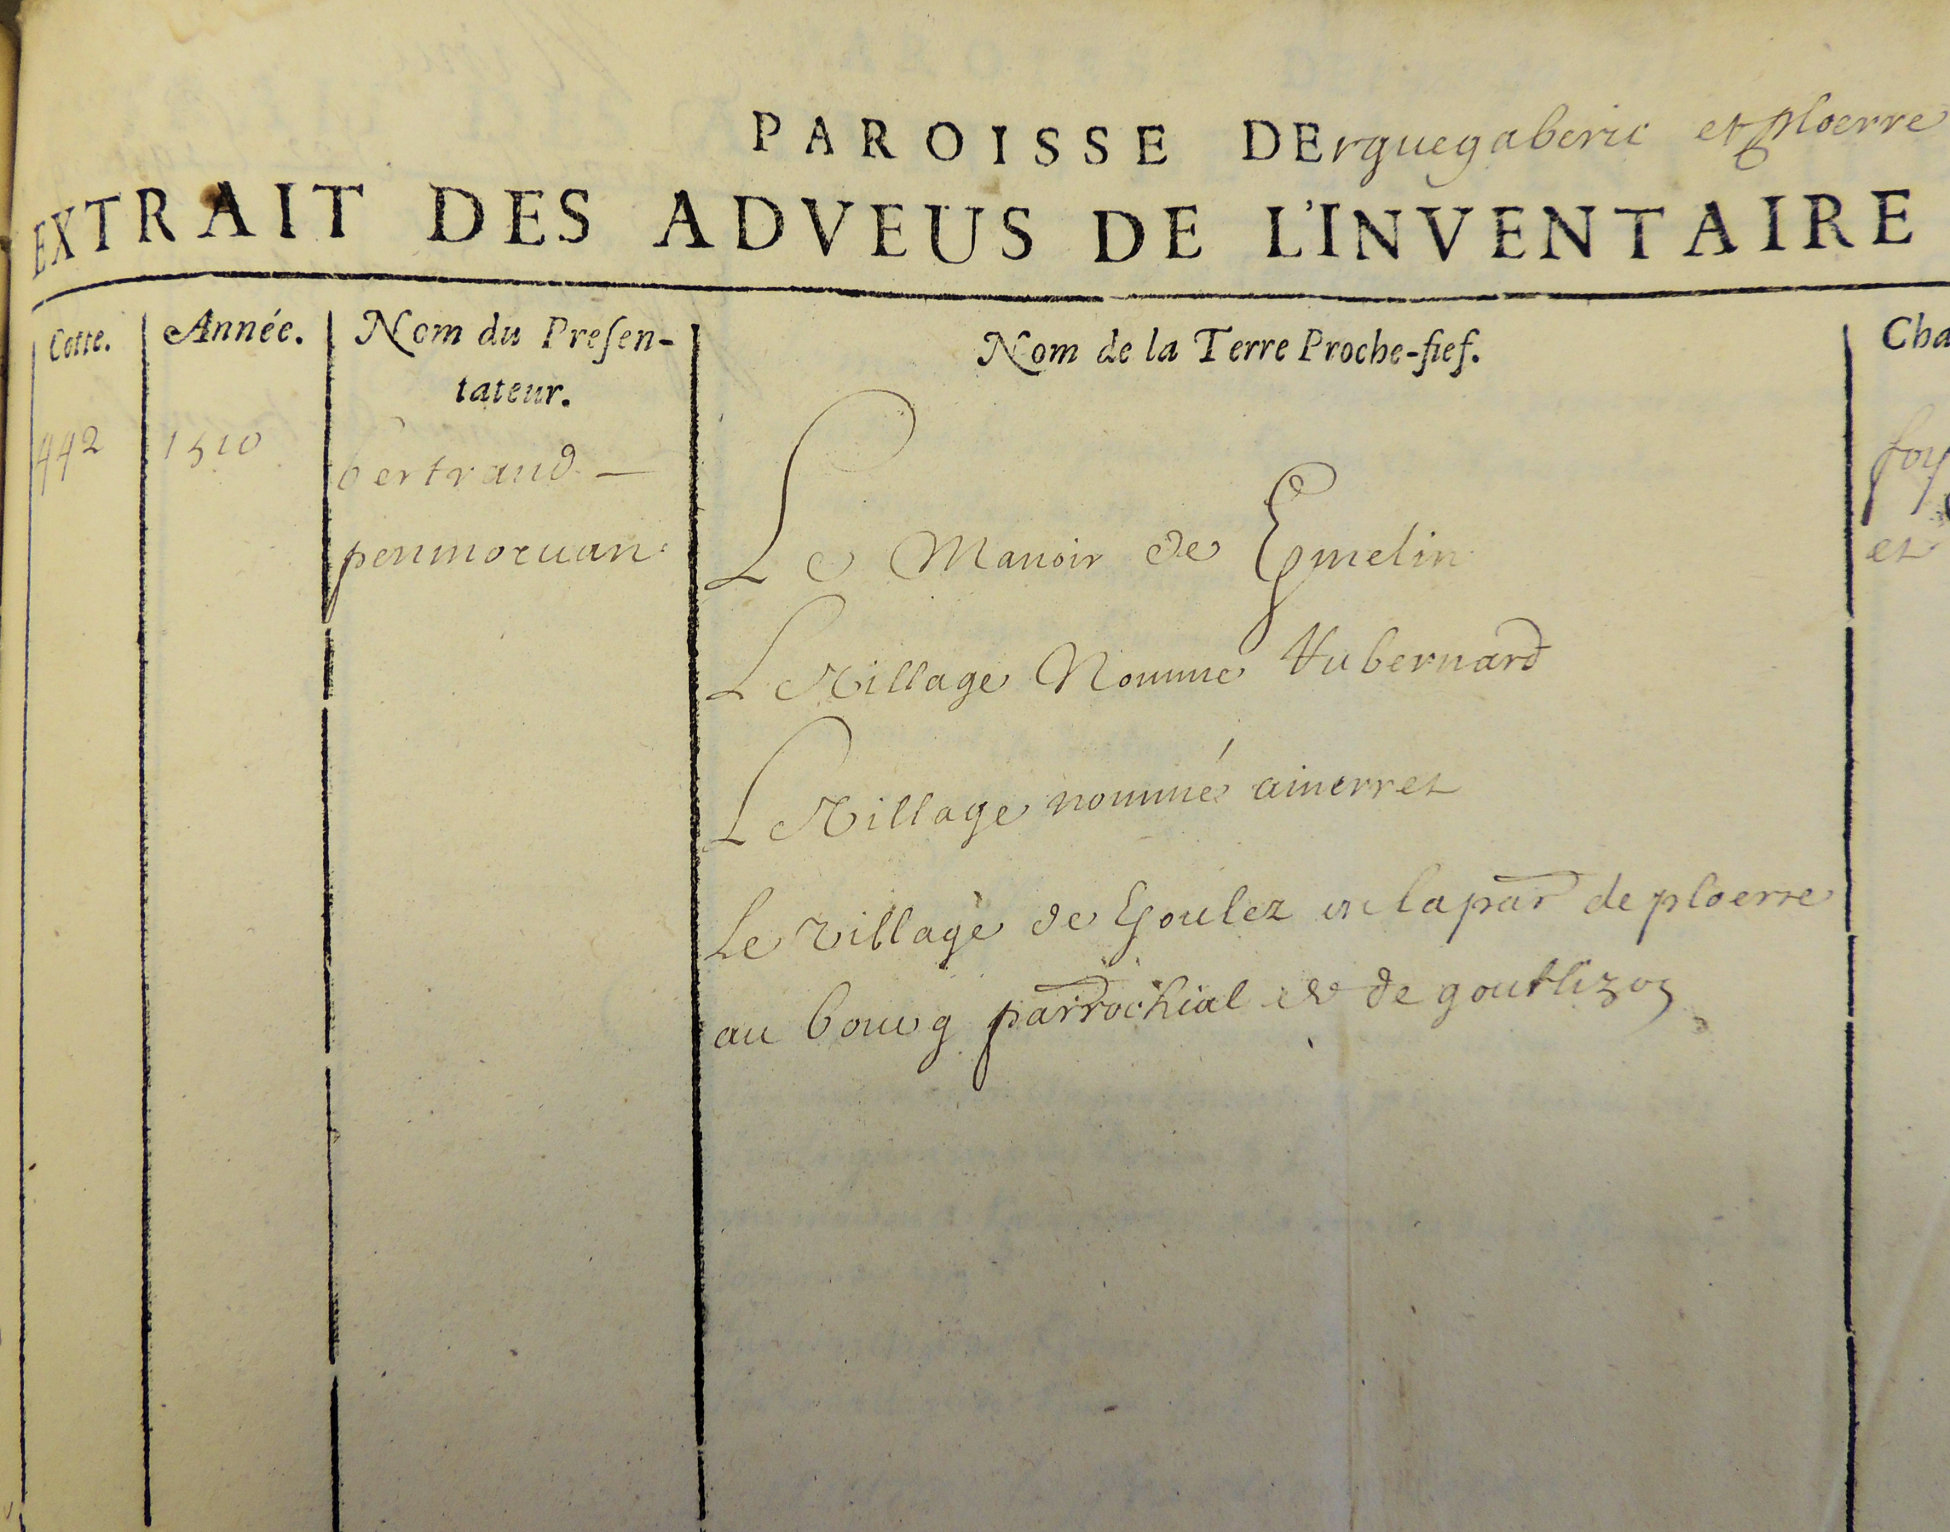 PAROISSE DErguegaberic et ploerre
EXTRAIT DES ADVEUS DE L'INVENTAIRE
Cotte. Année. Nom du Presen-
tateur. Nom de la Terre Proche-fief. Cha
442 1510 bertrand —
penmorvan
foy
Le Manoir de Kmelin
et
Le Village Nommé
Le Village nommé
Le village de Goulez en la par de ploerre
au bourg parrochial et de